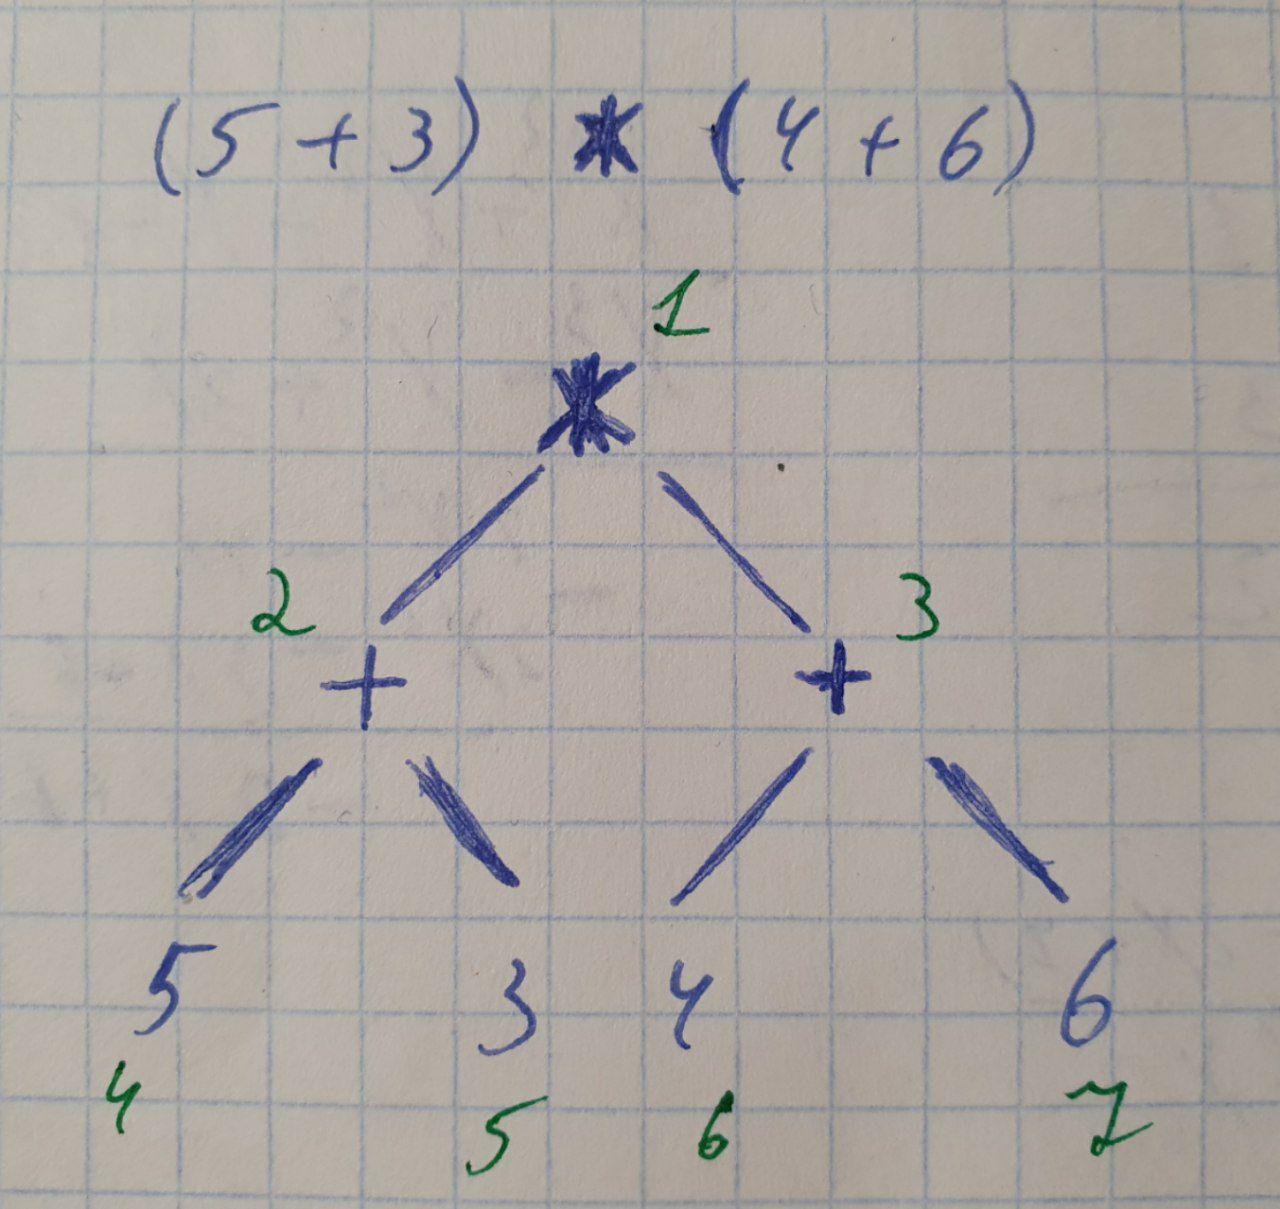 (5 + 3) * (4 + 6)
1
*
2 3
+ +
5 3 4 6
4 5 6 7